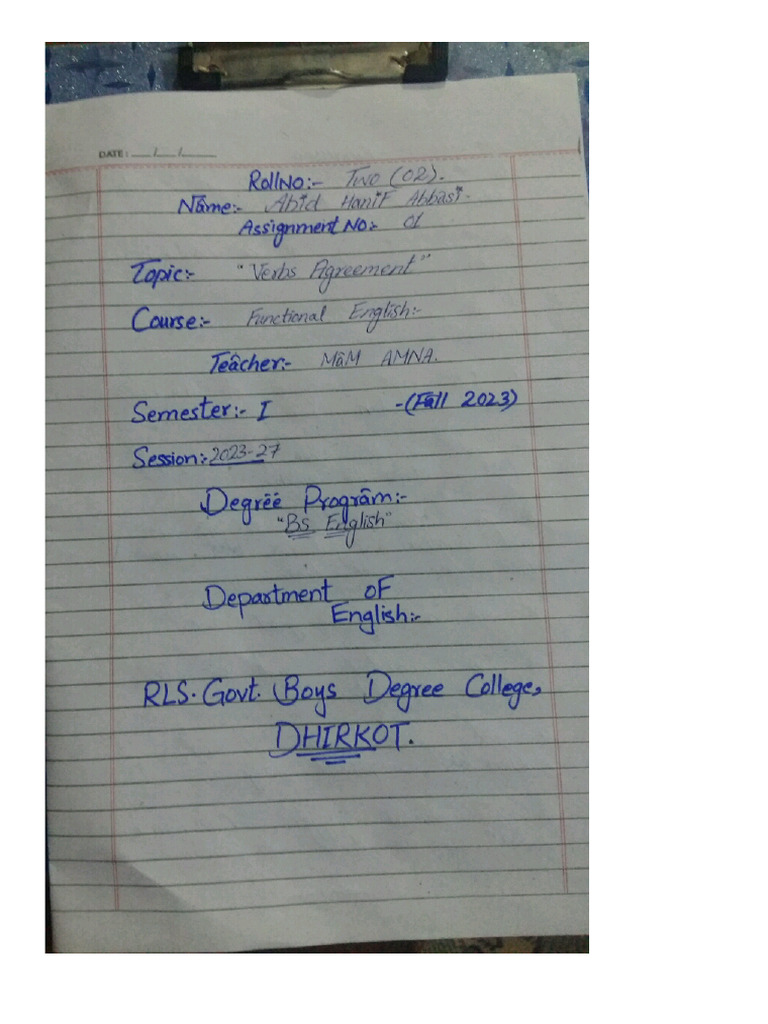 DATE: __/__/____
RollNo:- Two (02).
Name:- Abid Hanif Abbasi.
Assignment No:- 01
Topic:- "Verbs Agreement"
Course:- Functional English:-
Teacher:- MaM AMNA.
Semester:- I -(Fall 2023)
Session:- 2023-27
Degree Program:-
"Bs English"
Department of
English:-
RLS. Govt. Boys Degree College,
DHIRKOT.